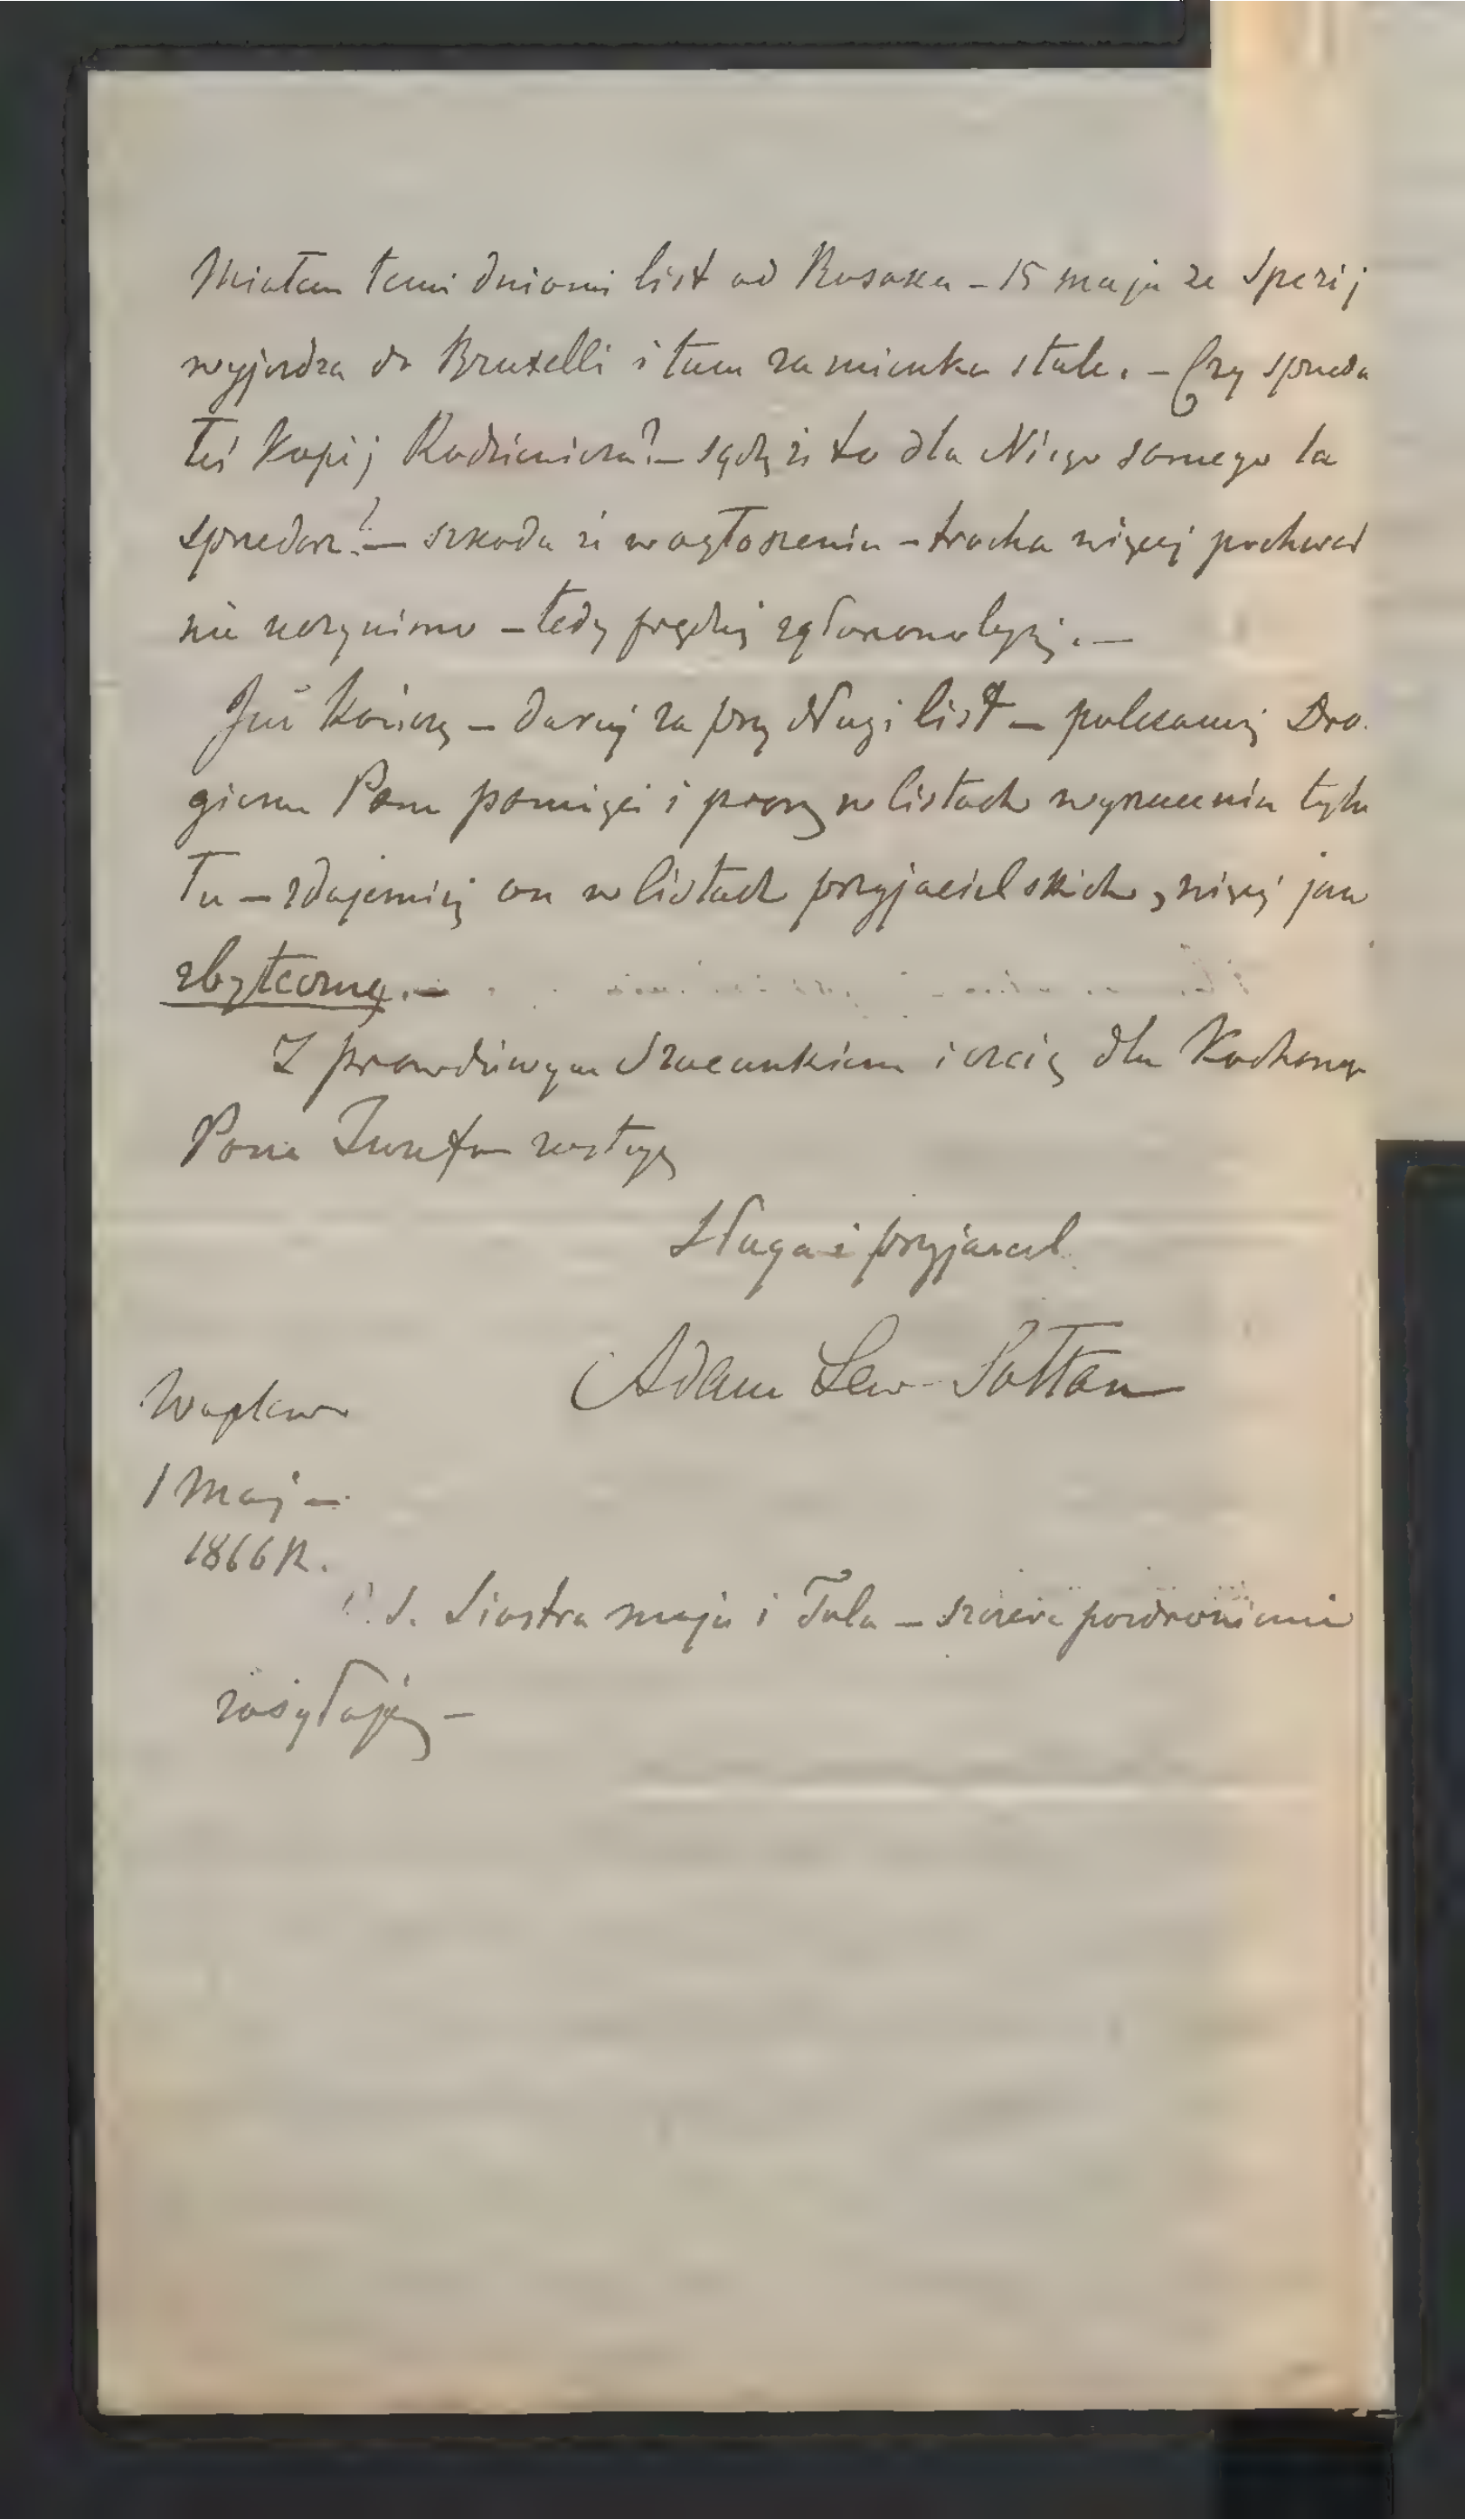 Miałem temi dniami list od Kosaka – 15 maja ze Spezij
wyjeżdza do Bruxelli i tam zamieszka stale. – Czy sprzeda
łeś Kopij Radziewicza? – sądzę że to dla Niego samego ta
sprzedarz? – szkoda że w ogłoszeniu – trocha więcej pochwał
nie uczyniono – tedy prędzej
Już kończę – daruj za przydługi list – polecam się Dro
giemu Panu pamięci i proszę w listach wyrzucenia tytu
łu – zdaje mi się on w listach przyjacielskich, więcej jak
zbyteczny. –
Z prawdziwym szacunkiem i czcią dla Kochanego
Pana Józefa zostaję
Sługa i przyjaciel
Adam Lew Sołtan
Waplewo
1 Maj –
1866 R.
P. S. Siostra moja i Tola – szczere pozdrowienie
zasyłają –